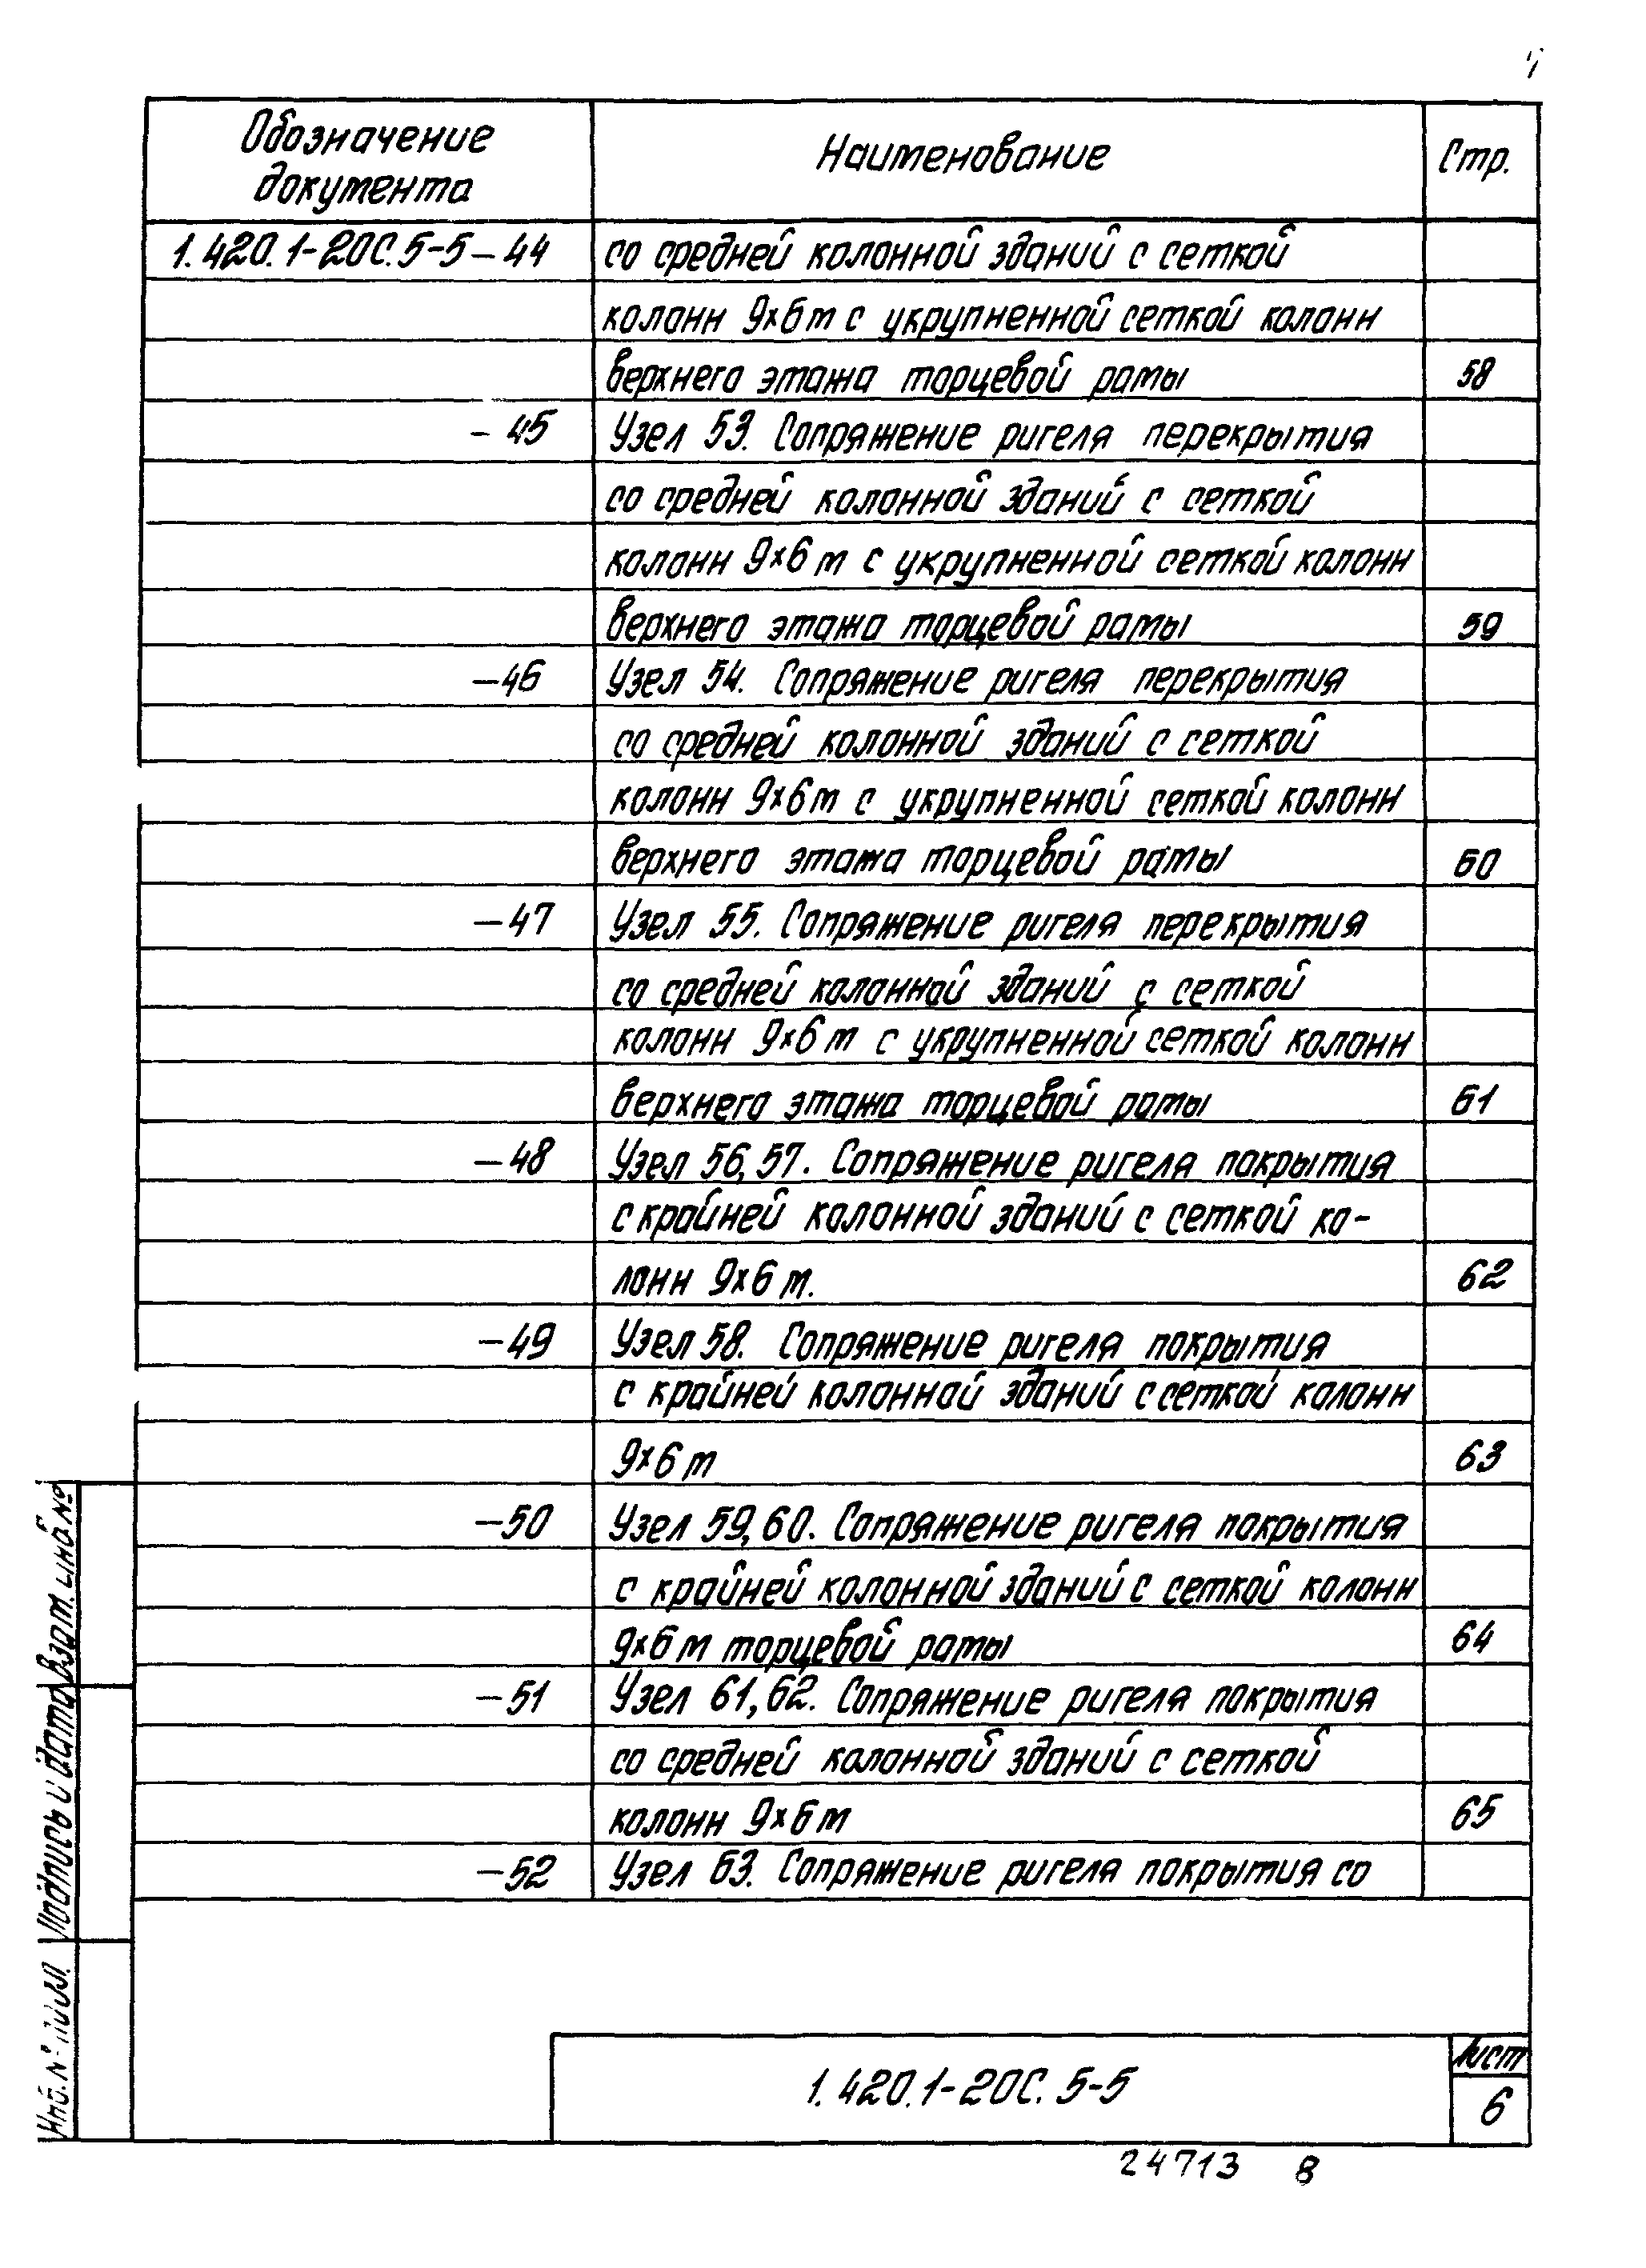 Обозначение
документа
Наименование
Стр.
1.420.1-20С.5-5-44 со средней колонной зданий с сеткой
колонн 9х6м с укрупненной сеткой колонн
верхнего этажа торцевой рамы 58
-45 Узел 53. Сопряжение ригеля перекрытия
со средней колонной зданий с сеткой
колонн 9х6 м с укрупненной сеткой колонн
верхнего этажа торцевой рамы 59
-46 Узел 54. Сопряжение ригеля перекрытия
со средней колонной зданий с сеткой
колонн 9х6м с укрупненной сеткой колонн
верхнего этажа торцевой рамы 60
-47 Узел 55. Сопряжение ригеля перекрытия
со средней колонной зданий с сеткой
колонн 9х6 м с укрупненной сеткой колонн
верхнего этажа торцевой рамы 61
-48 Узел 56,57. Сопряжение ригеля покрытия
с крайней колонной зданий с сеткой ко-
лонн 9х6 м. 62
-49 Узел 58. Сопряжение ригеля покрытия
с крайней колонной зданий с сеткой колонн
9х6 м 63
-50 Узел 59,60. Сопряжение ригеля покрытия
с крайней колонной зданий с сеткой колонн
9х6 м торцевой рамы 64
-51 Узел 61,62. Сопряжение ригеля покрытия
со средней колонной зданий с сеткой
колонн 9х6м 65
-52 Узел 63. Сопряжение ригеля покрытия со
Взам. инв №
Подпись и дата
Инв. № подл.
1.420.1-20С. 5-5
Лист
6
24713 8